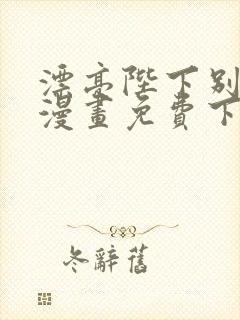 漂亭陛下别
漫畫免費下
冬辭舊